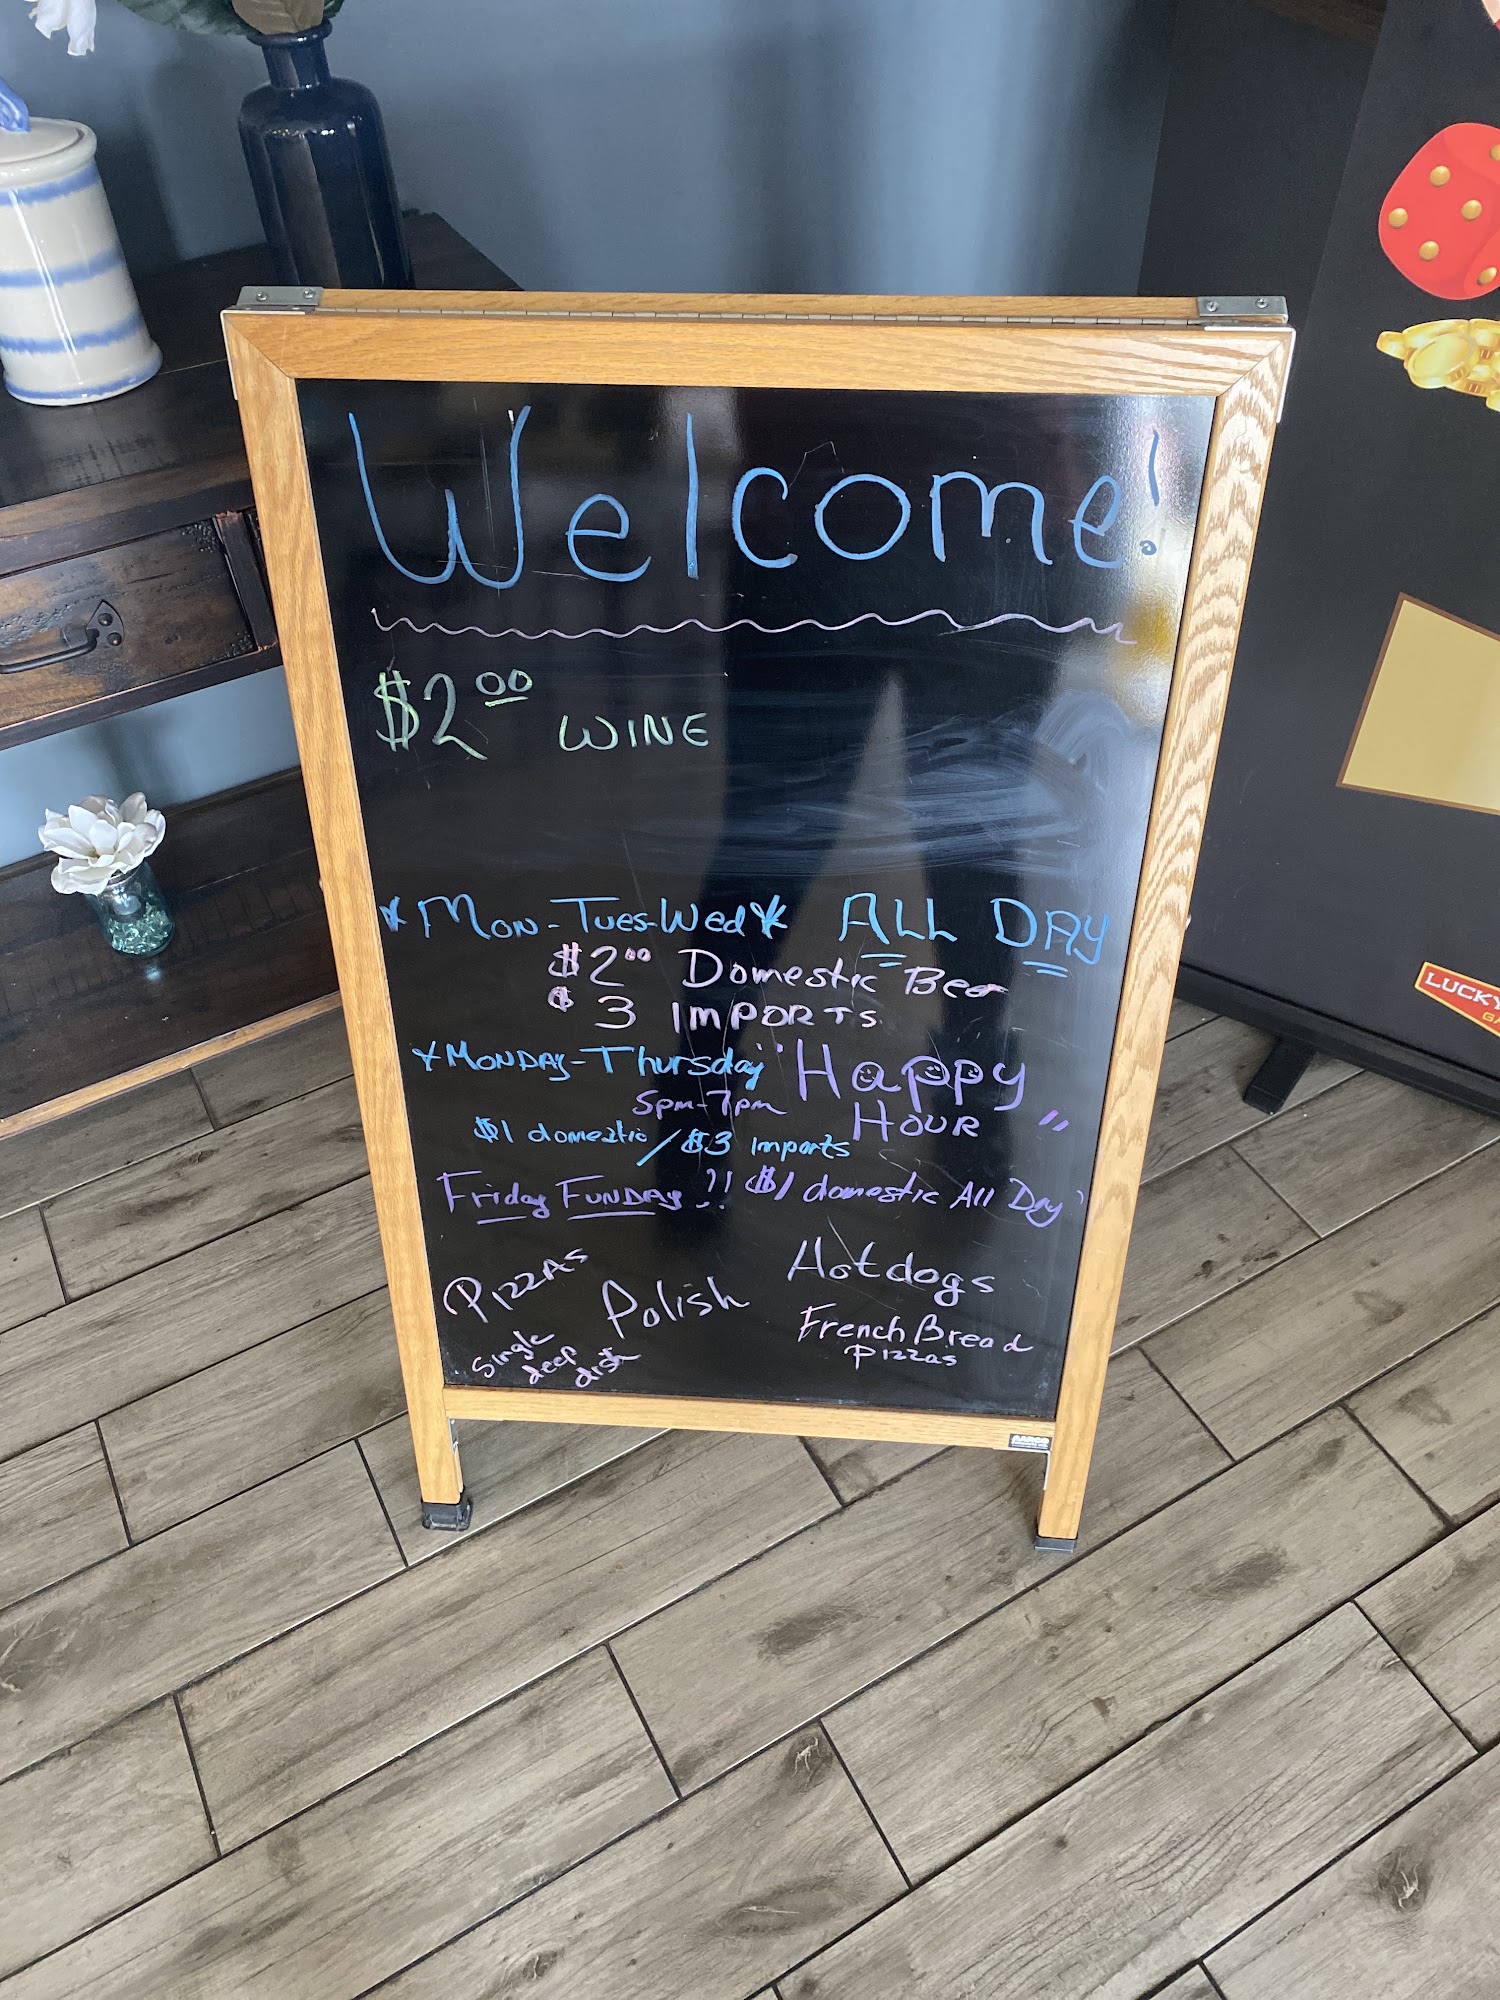 Welcome!
$2.00 WINE
*Mon-Tues-Wed* ALL DAY
$2.00 Domestic Beer
$3 IMPORTS
*MONDAY-Thursday "Happy
5pm-7pm HOUR"
$1 domestic/$3 imports
Friday FUNDAY!! $1 domestic All Day
Pizzas Polish Hotdogs
single deep dish
French Bread
Pizzas
LUCKY